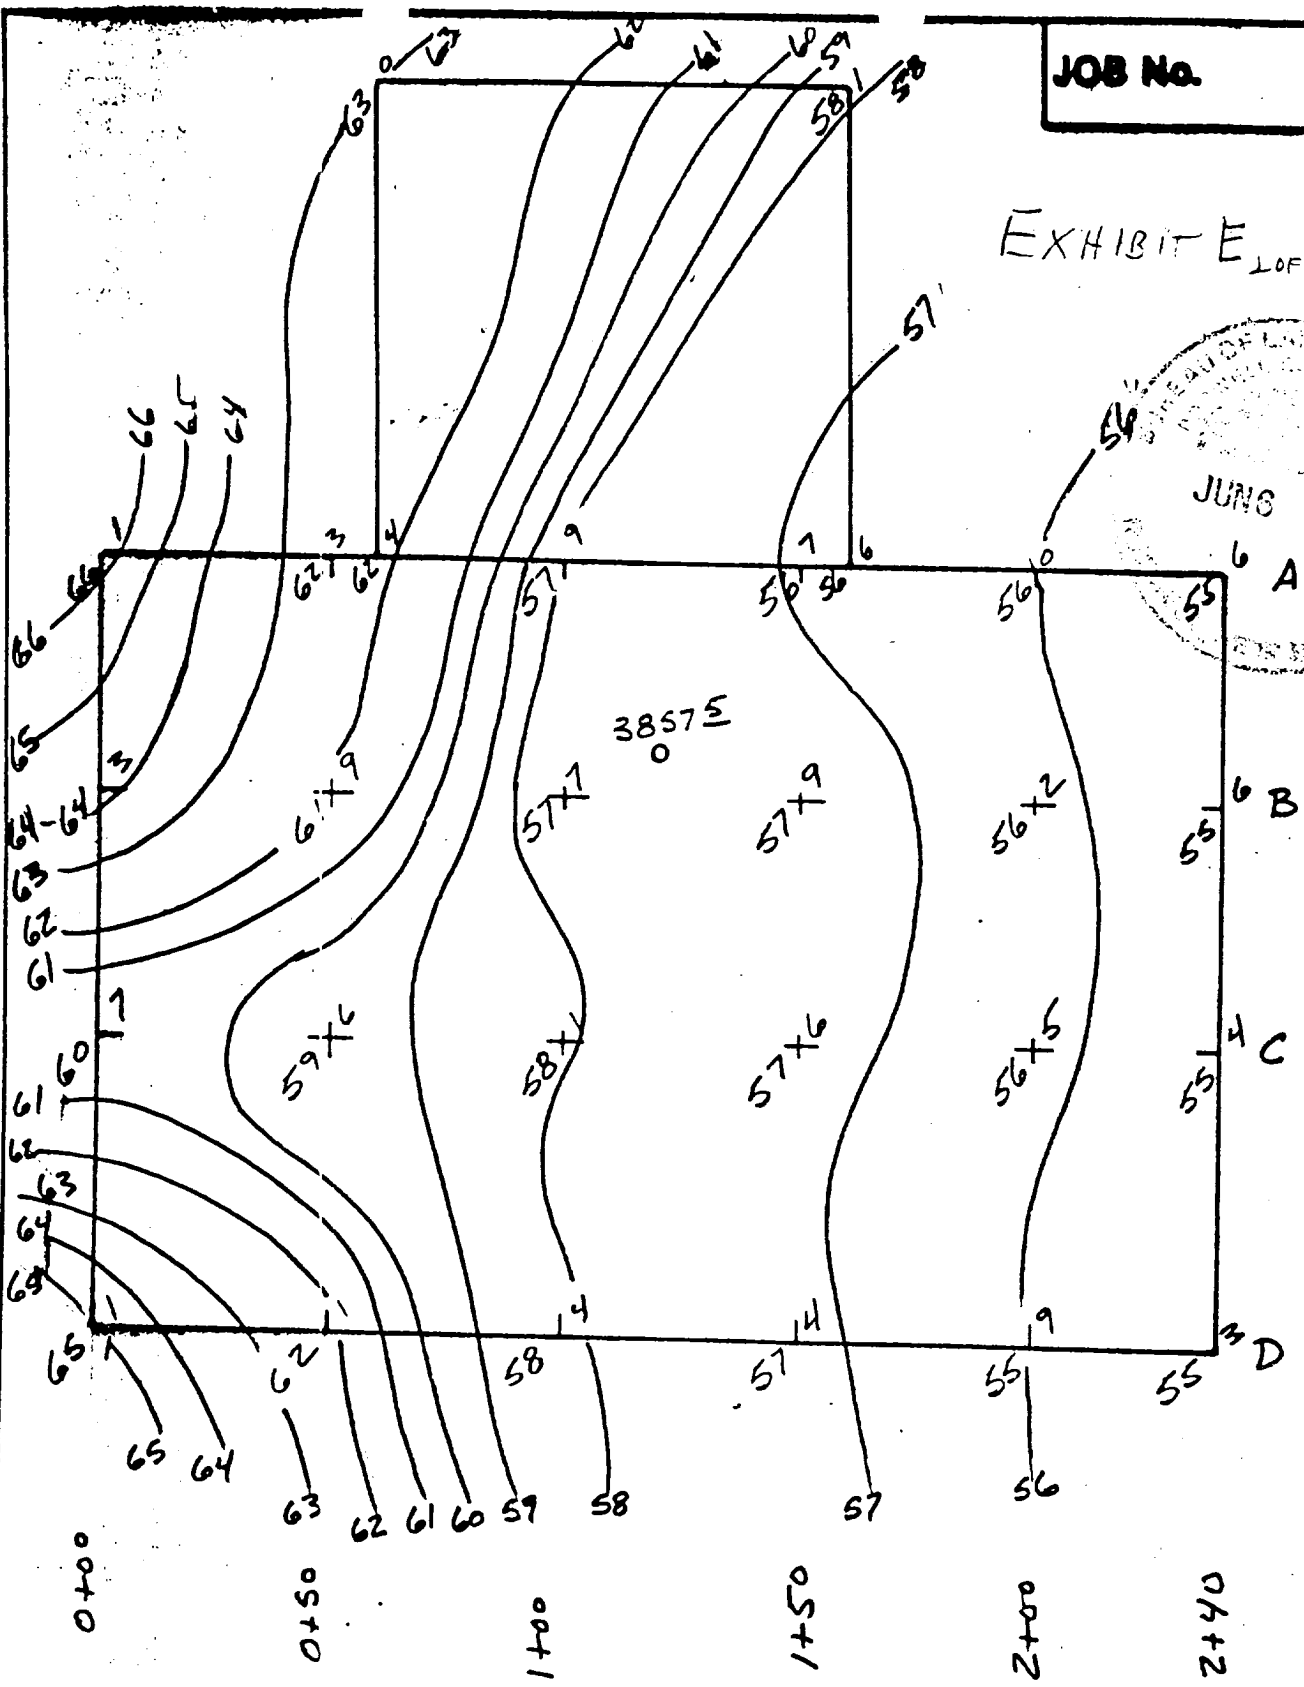 JOB No.
EXHIBIT E 1 OF
63
62
61
60
59
58
63
0
58 1
57'
56
66
65
64
JUN 6
66 1
62 3
62 4
57 9
56 7
56 6
56 0
55 6
A
66
65
64-64
3
38575
61 9
57 7
57 9
56 2
55 6
B
63
62
61
60 7
59 6
58 1
57 6
56 5
55 4
C
61
62
63
64
65 1
62
58 4
57 4
55 9
55 3
D
65
64
63
62
61
60
59
58
57
56
0+00
0+50
1+00
1+50
2+00
2+40